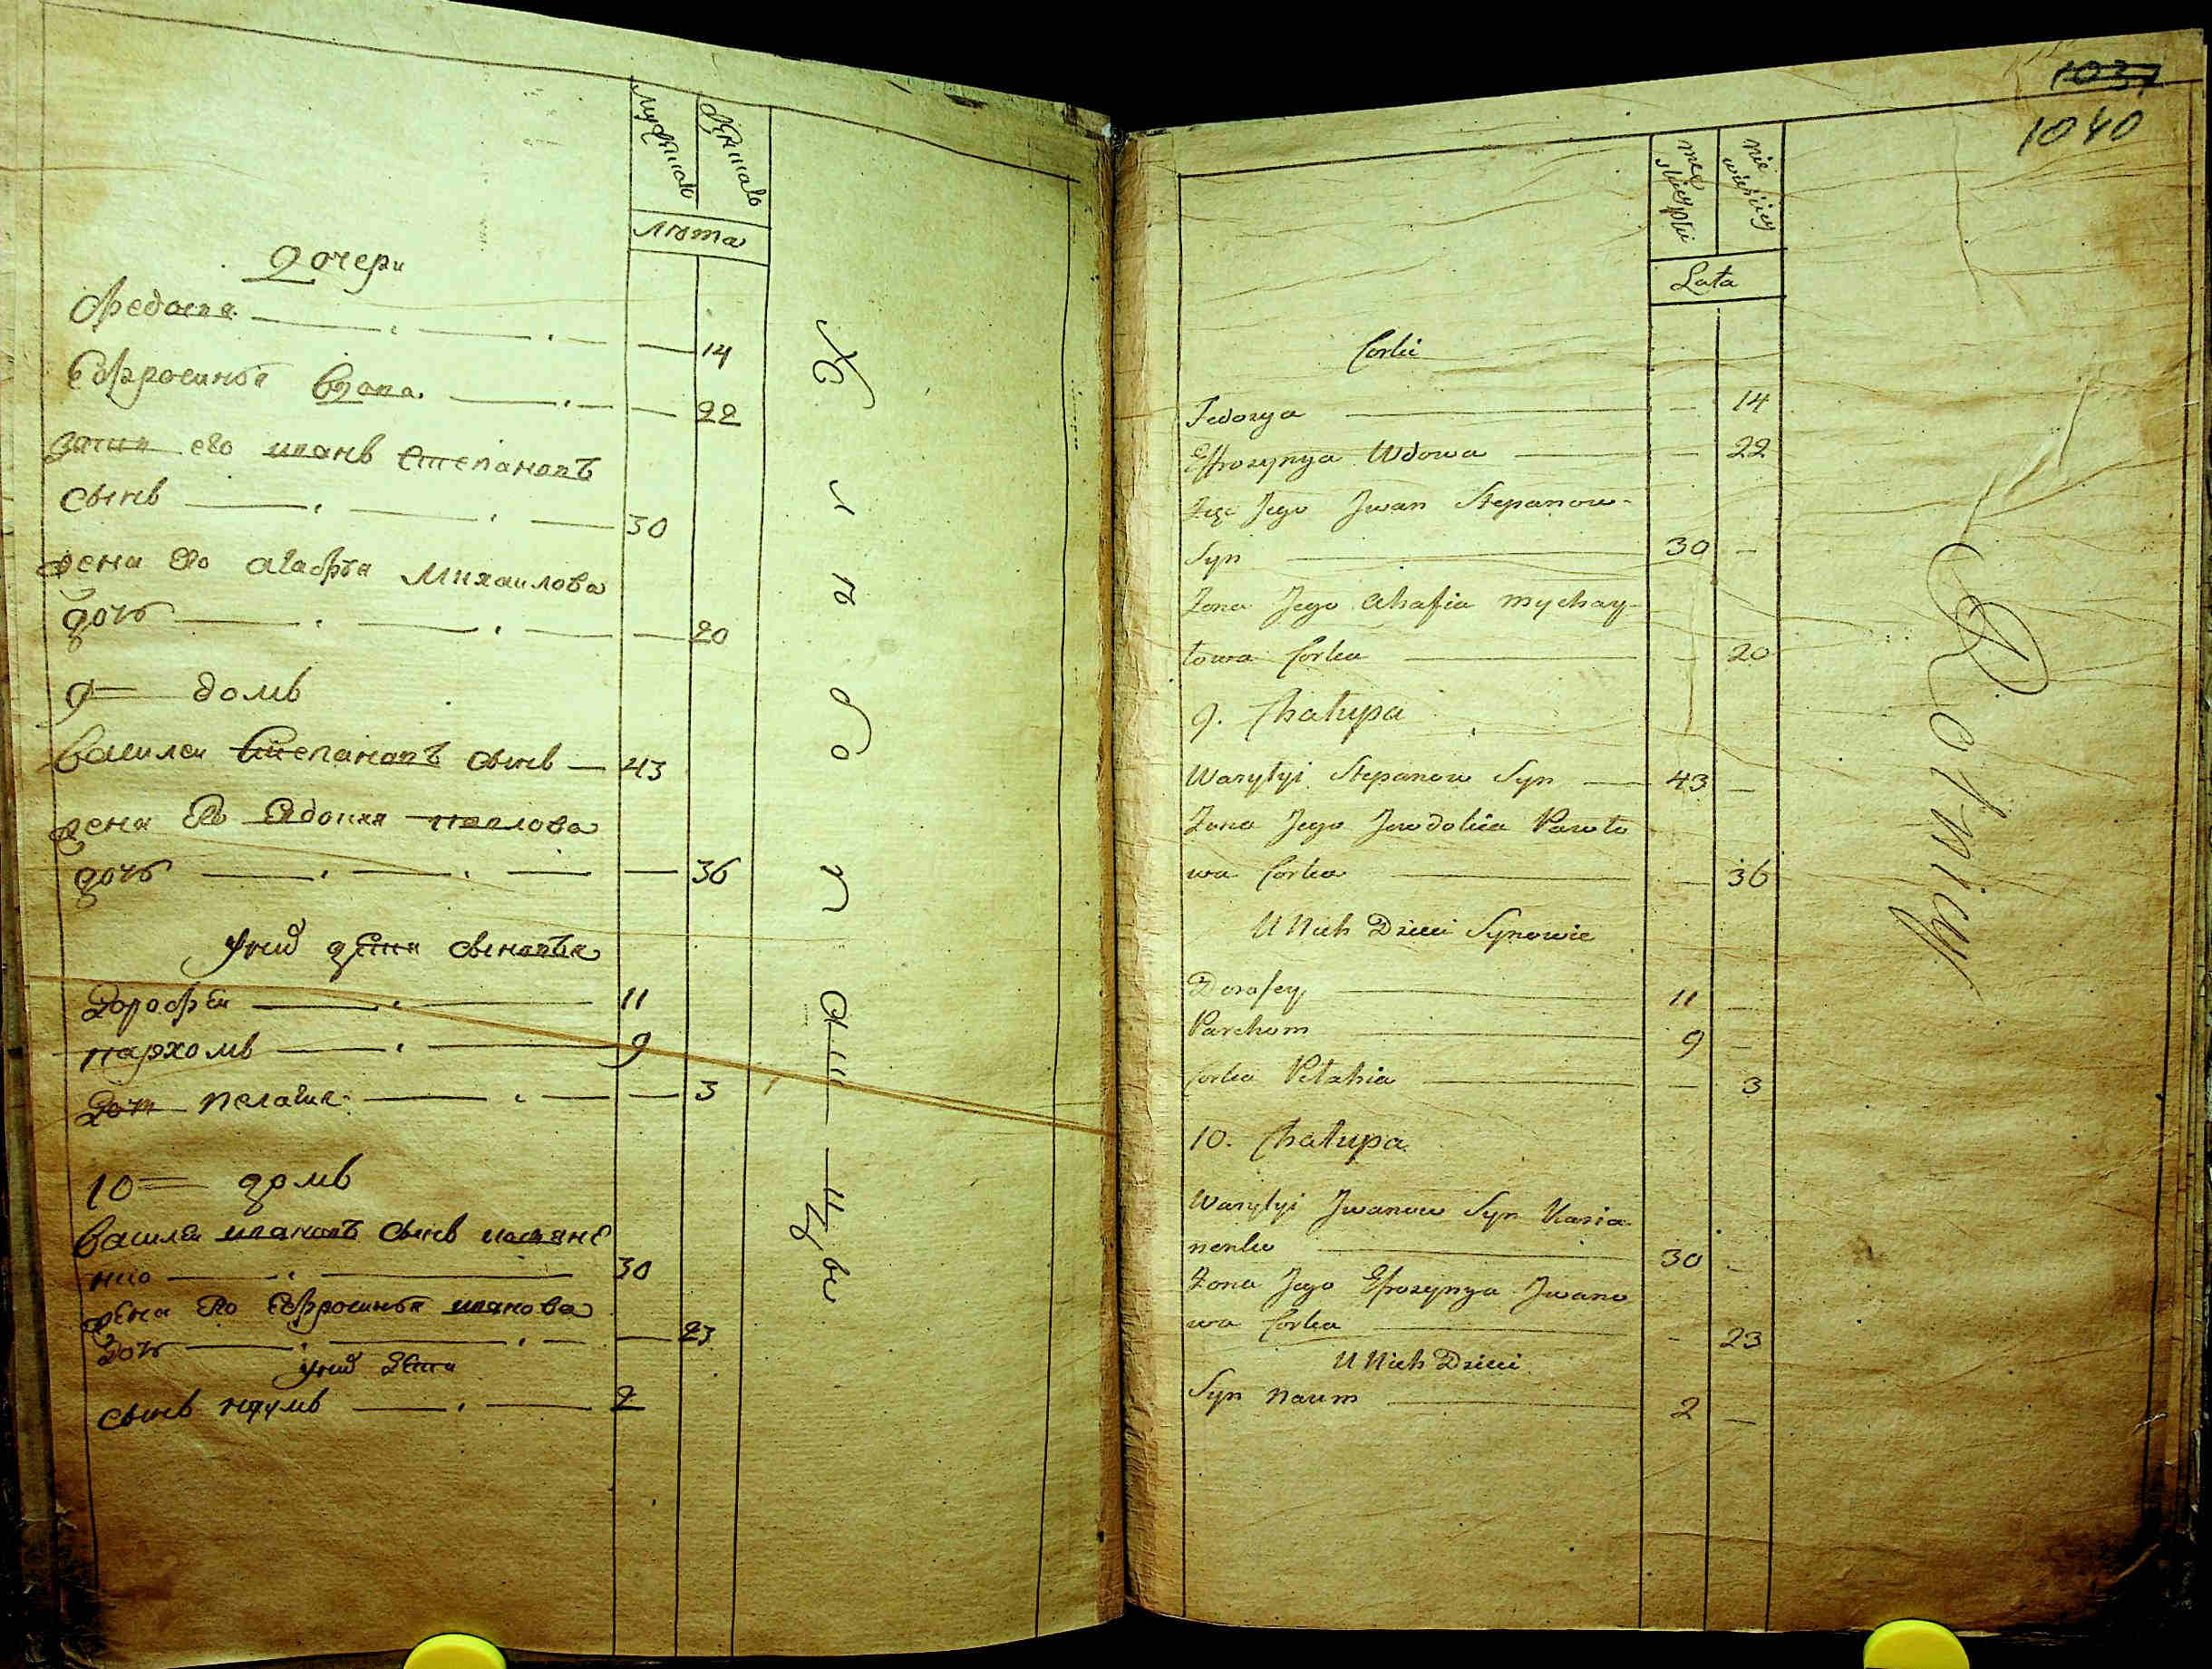 мужеска
женска
лѣта
Дочери
Федосия 14
Ефросинья вдова 22
зять его иванъ степановъ
сынъ 30
жена его агафья михаилова
дочь 20
9 домъ
василеи степановъ сынъ 43
жена его евдокия павлова
дочь 36
у них дети сыновья
дорофеи 11
пархомъ 9
дочь пелагия 3
10 домъ
василеи ивановъ сынъ касяне
нко 30
жена его ефросинья иванова
дочь 23
у них дети
сынъ наумъ 2
1037
1040
męz
skiey płci
nie
wieściey
Lata
Corki
Fedosya 14
Effrozynya Wdowa 22
Zięć Jego Jwan Stepanow
Syn 30
Żona Jego Ahafia Mychay-
łowa Corka 20
9. Chałupa
Wasylyi Stepanow Syn 43
Żona Jego Jewdokia Pawło
wa Corka 36
U Nich Dzieci Synowie
Dorofey 11
Parchom 9
Corka Pelahia 3
10. Chałupa
Wasylyi Jwanow Syn Kasia
nenko 30
Żona Jego Efrozynya Jwano
wa Corka 23
U Nich Dzieci
Syn Naum 2
Rolnicy